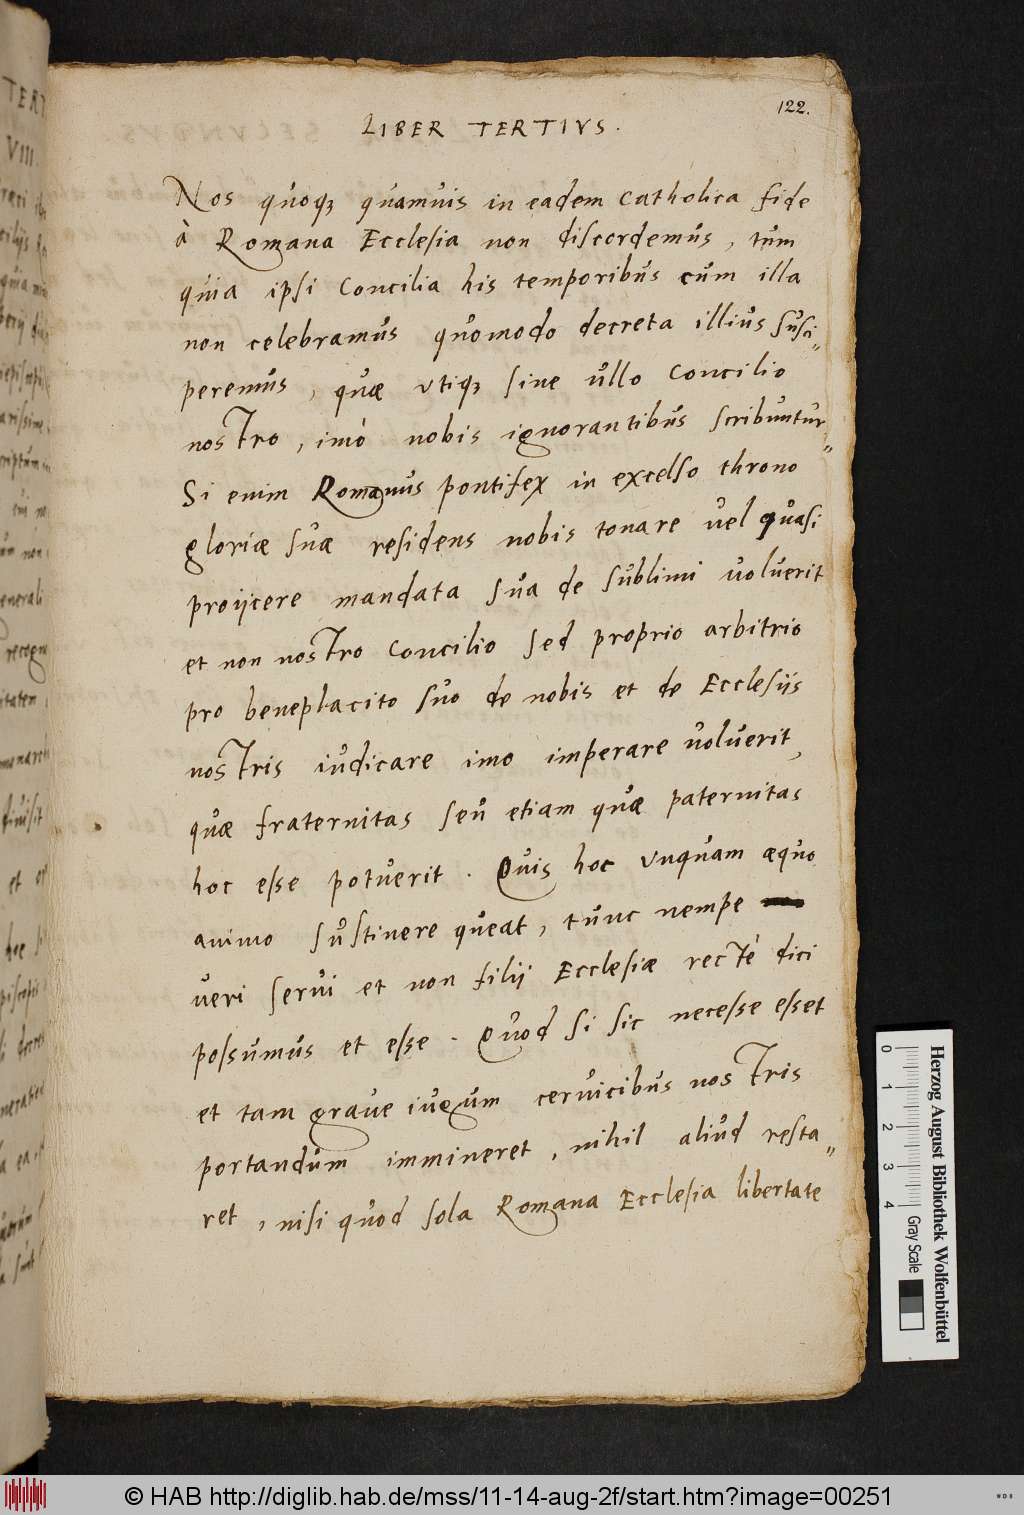 122.
LIBER TERTIVS.
Nos quoqꝫ quamuis in eadem Catholica fide
à Romana Ecclesia non discordemus, tum
quia ipsi Concilia his temporibus cum illa
non celebramus quomodo decreta illius susci„
peremus, quæ vtiqꝫ sine ullo Concilio
nostro, imò nobis ignorantibus scribuntur„
Si enim Romanus pontifex in excelso throno
gloriæ suæ residens nobis tonare uel quasi
proijcere mandata sua de sublimi uoluerit
et non nostro Concilio sed proprio arbitrio
pro beneplacito suo de nobis et de Ecclesijs
nostris iudicare imo imperare uoluerit,
quæ fraternitas seu etiam quæ paternitas
hoc esse potuerit. Quis hoc vnquam æquo
animo sustinere queat, tunc nempe
ueri serui et non filij Ecclesiæ rectè dici
possumus et esse. Quod si sic necesse esset
et tam graue iugum ceruicibus nostris
portandum immineret, nihil aliud resta„
ret, nisi quod sola Romana Ecclesia libertate
0 1 2 3 4
Gray Scale
Herzog August Bibliothek Wolfenbüttel
© HAB http://diglib.hab.de/mss/11-14-aug-2f/start.htm?image=00251